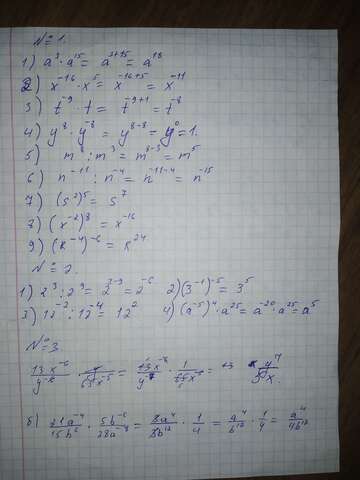 №1.
1) a³·a¹⁵ = a³⁺¹⁵ = a¹⁸
2) x⁻¹⁶·x⁵ = x⁻¹⁶⁺⁵ = x⁻¹¹
3) t⁻⁹·t = t⁻⁹⁺¹ = t⁻⁸
4) y⁸·y⁻⁸ = y⁸⁻⁸ = y⁰ = 1.
5) m⁸:m³ = m⁸⁻³ = m⁵
6) n⁻¹¹:n⁻⁴ = n⁻¹¹⁻⁴ = n⁻¹⁵
7) (s²)⁵ = s⁷
8) (x⁻²)⁸ = x⁻¹⁶
9) (k⁻⁴)⁻⁶ = k²⁴
№2.
1) 2³:2⁹ = 2³⁻⁹ = 2⁻⁶ 2) (3⁻¹)⁻⁵ = 3⁵
3) 12⁻²:12⁻⁴ = 12² 4) (a⁻⁵)⁴·a²⁵ = a⁻²⁰·a²⁵ = a⁵
№3
б) 21a⁻⁴/15b⁶ · 5b⁻⁶/28a⁻⁸ = 3a⁴/3b¹² · 1/4 = a⁴/b¹² · 1/4 = a⁴/4b¹²